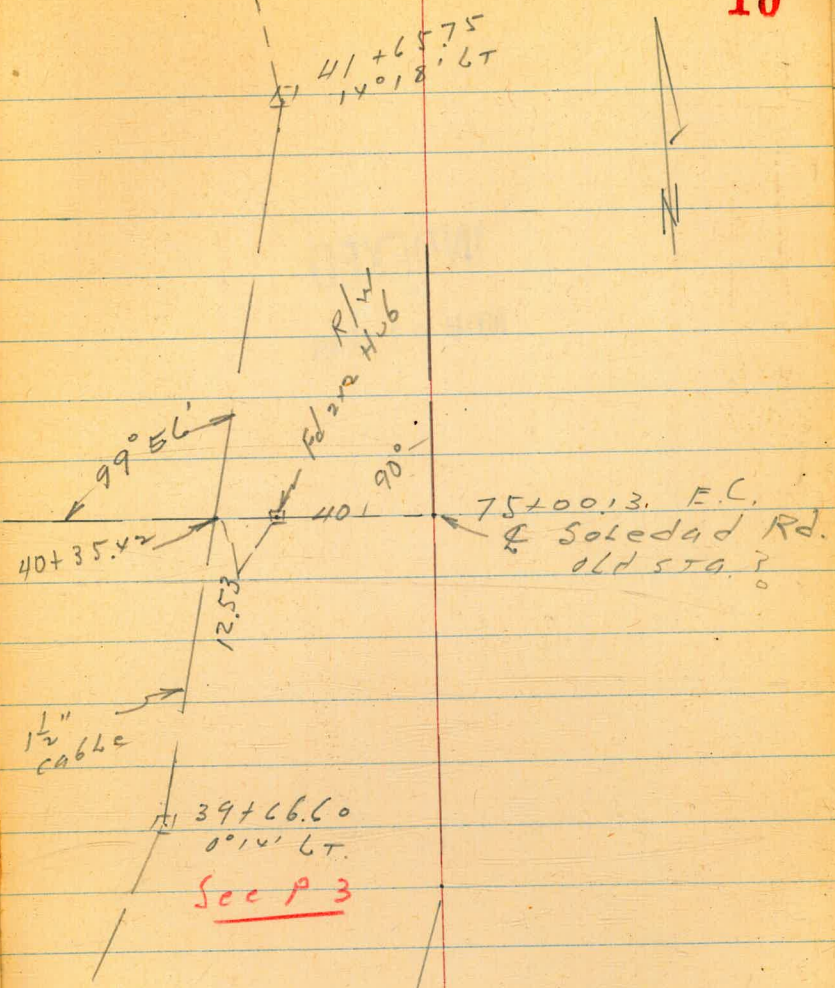 10
41+65.75
14°18' LT
N
R/W
Fd 2x2 Hub
99°56'
90°
40'
75+00.13. E.C.
℄ Soledad Rd.
old sta. ?
40+35.42
12.53
1½"
cable
39+66.60
0°14' LT.
See P 3